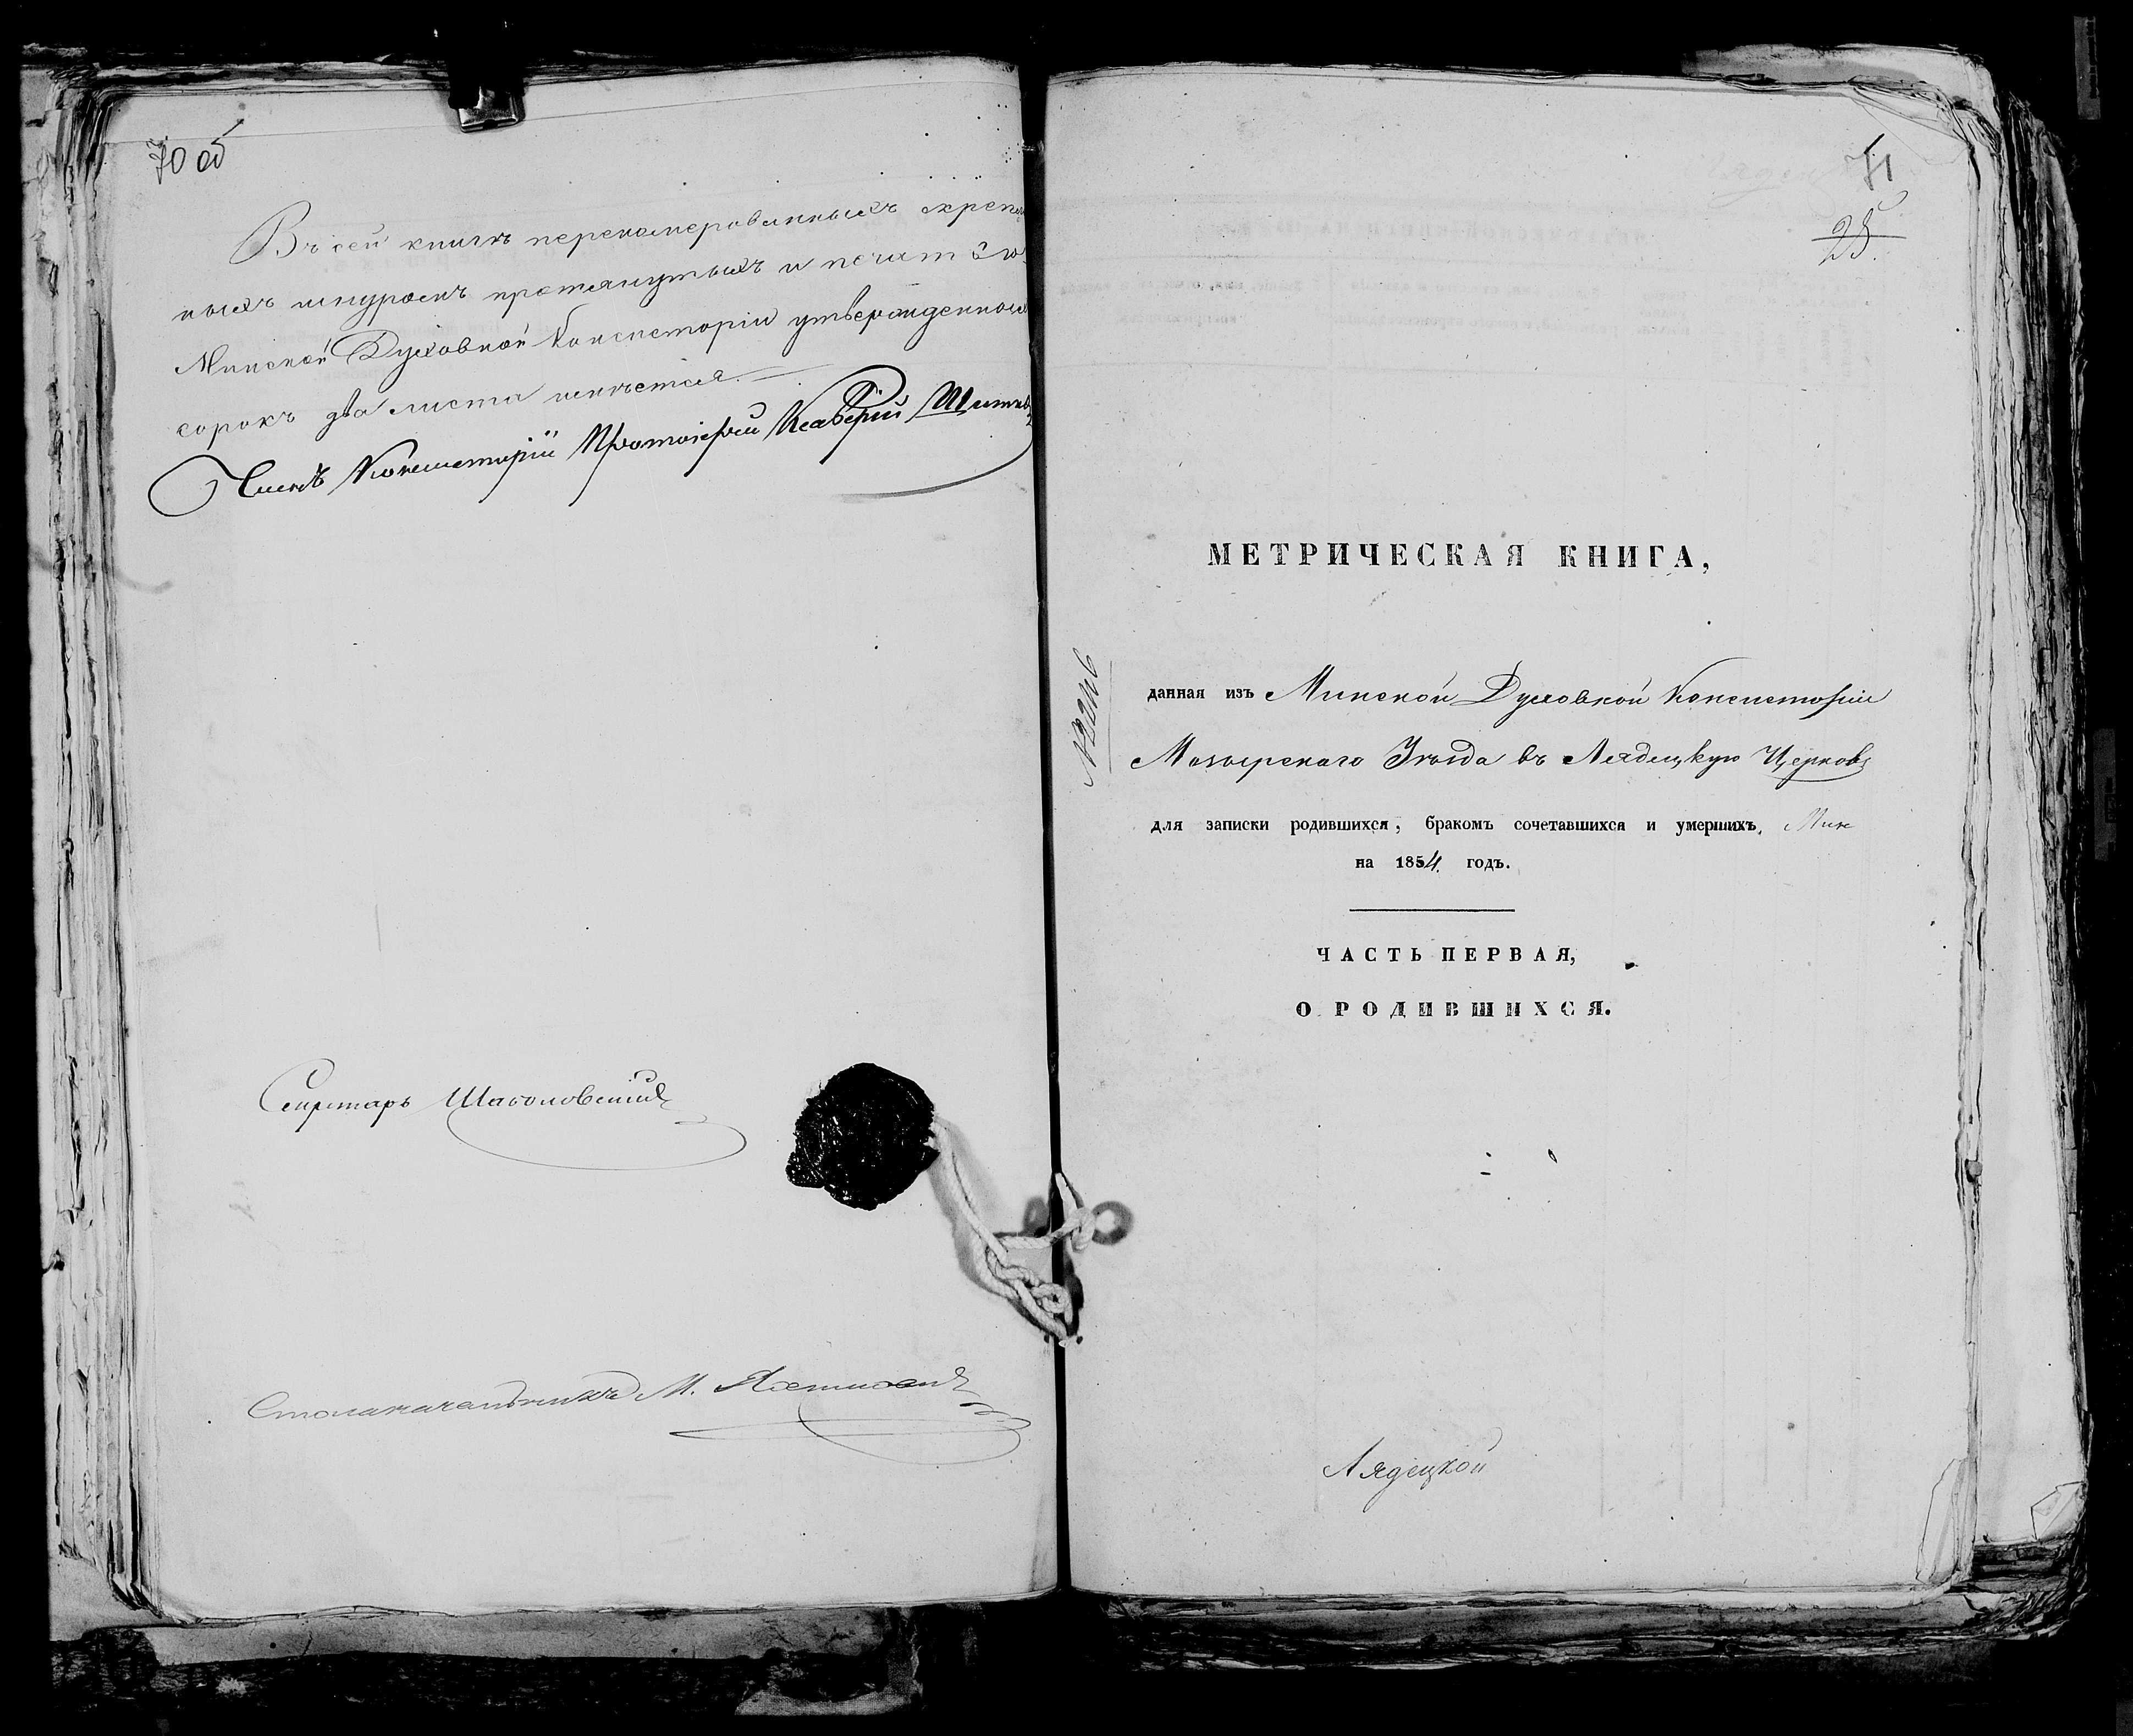 70 об
Въ сей книгѣ перенумерованныхъ скрепле
ныхъ шнуромъ протянутыхъ и печатью
Минской Духовной Консисторіи утвержденныхъ
сорокъ два листа имѣется.
Членъ Консисторіи Протоіерей
Секретарь
Столоначальникъ М.
71
25.
МЕТРИЧЕСКАЯ КНИГА,
данная изъ Минской Духовной Консисторіи
Мозырскаго Уѣзда въ Лядецкую Церковь
для записки родившихся, бракомъ сочетавшихся и умершихъ,
на 1854. годъ.
ЧАСТЬ ПЕРВАЯ,
О РОДИВШИХСЯ.
Лядецкой